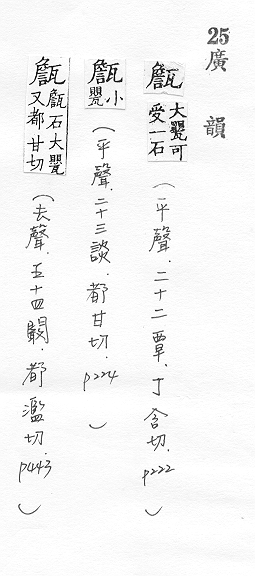 25廣韻
甔 大甖可受一石 (平聲.二十二覃.丁含切.p222)
甔 小甖 (平聲.二十三談.都甘切.p224)
甔 甔石大甖又都甘切 (去聲.五十四闞.都濫切.p443)